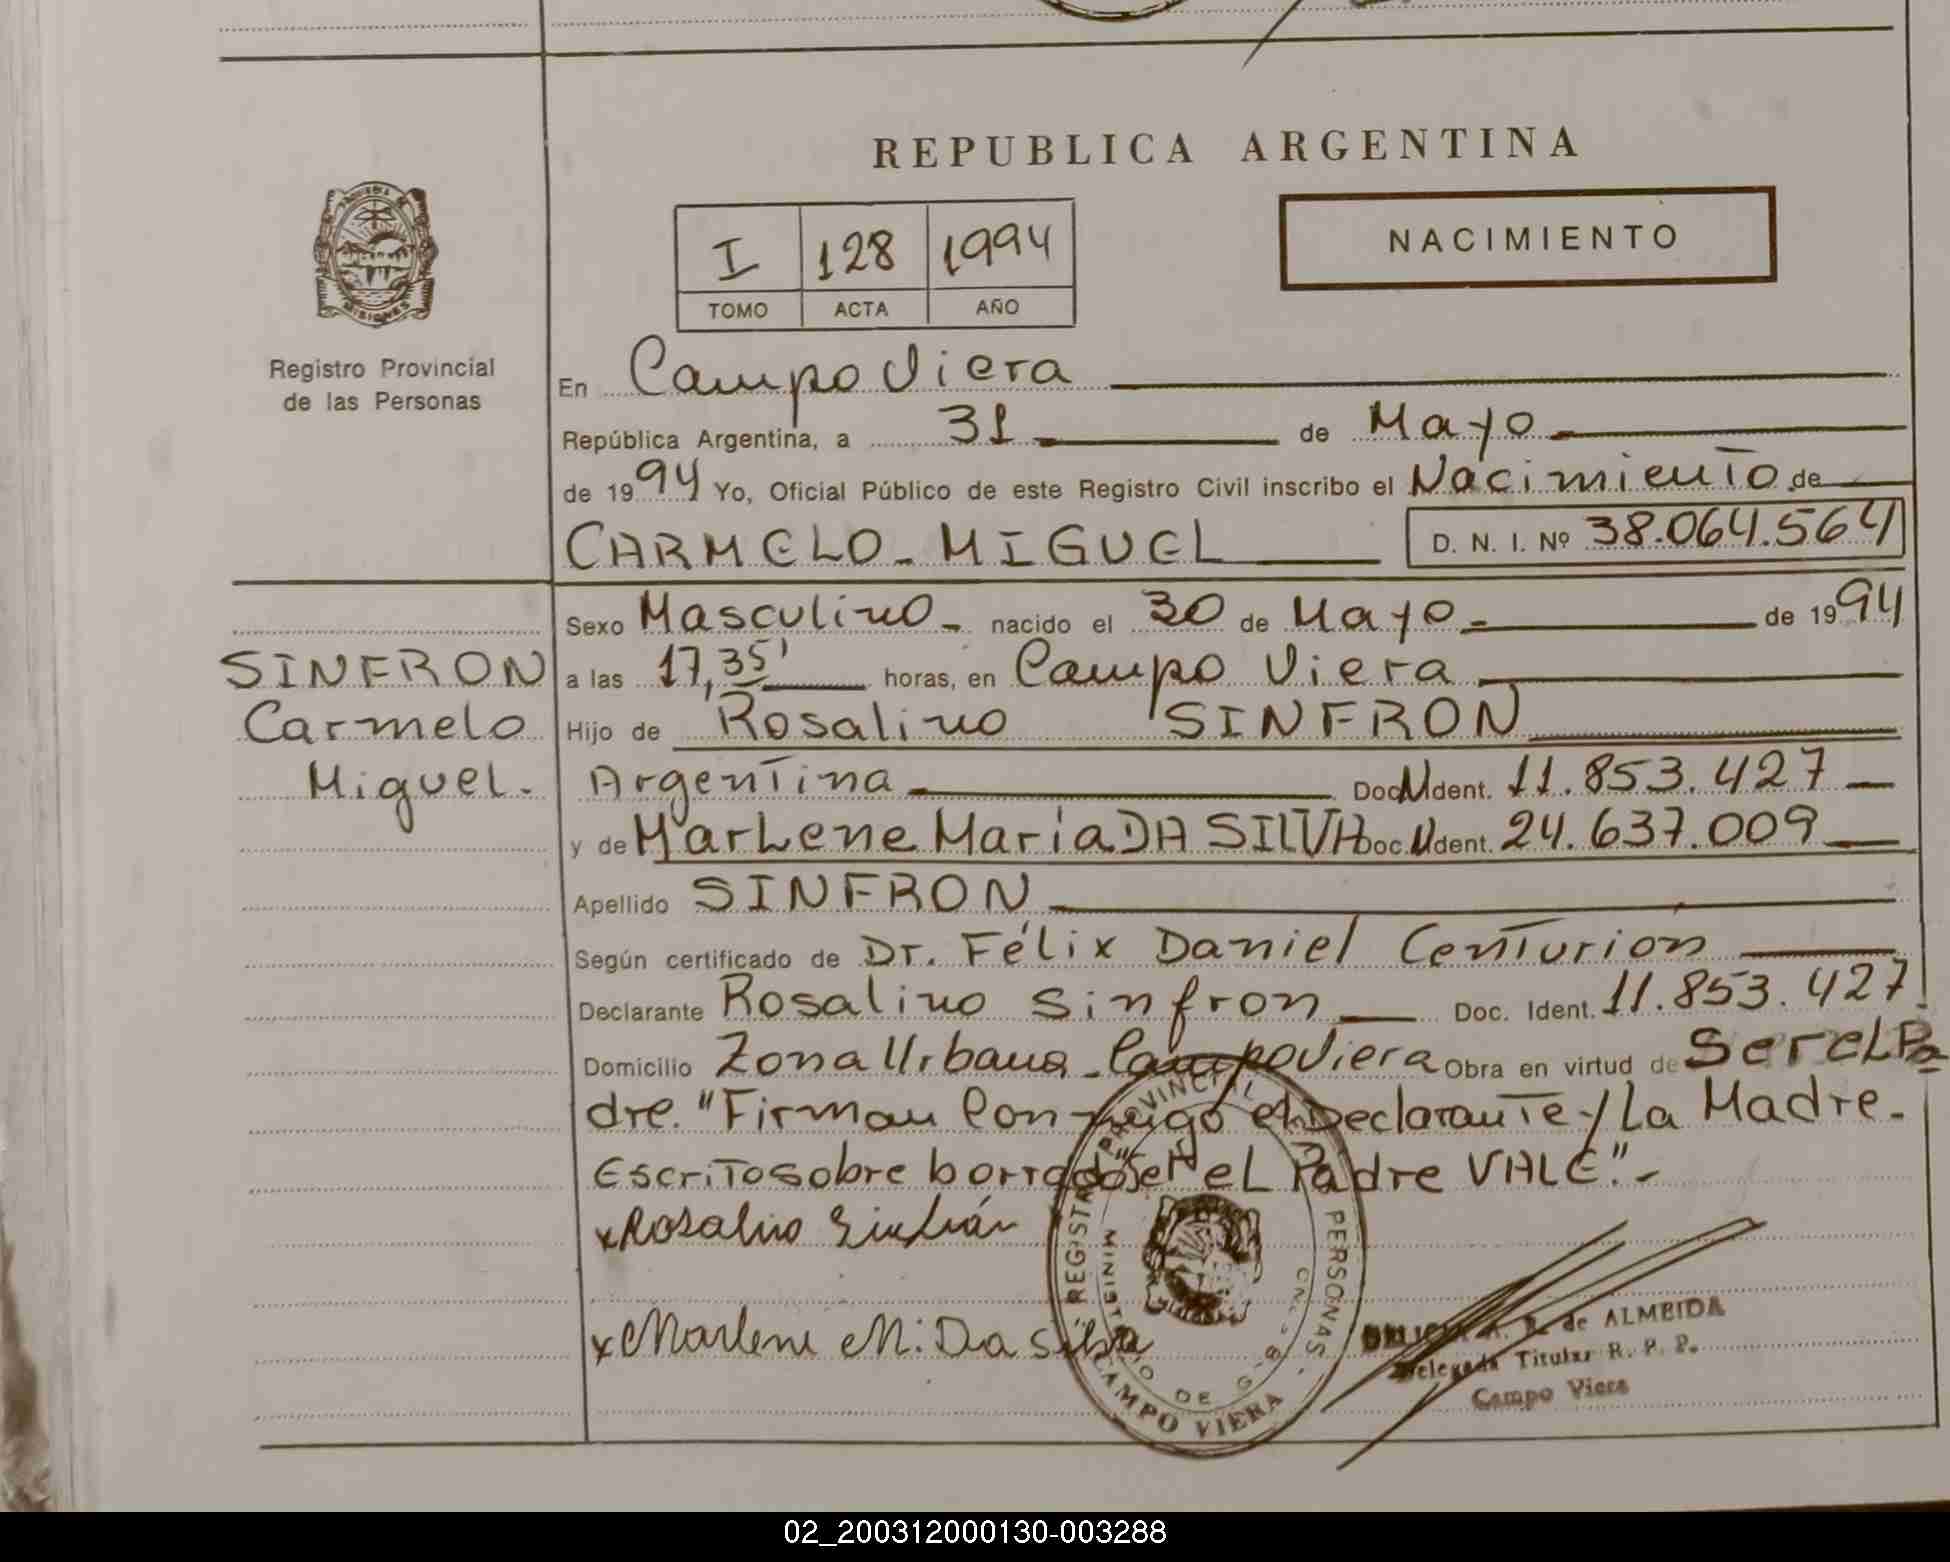 REPUBLICA ARGENTINA
I 128 1994
TOMO ACTA AÑO
NACIMIENTO
MISIONES
Registro Provincial
de las Personas
En Campo Viera
República Argentina, a 31 de Mayo
de 1994 Yo, Oficial Público de este Registro Civil inscribo el Nacimiento de
CARMELO - MIGUEL D. N. I. Nº 38.064.564
SINFRON
Carmelo
Miguel.
Sexo Masculino - nacido el 30 de Mayo - de 1994
a las 17,35' horas, en Campo Viera
Hijo de Rosalino SINFRON
Argentina Doc. Ident. 11.853.427
y de Marlene María DA SILVA Doc. Ident. 24.637.009
Apellido SINFRON
Según certificado de Dr. Félix Daniel Centurion
Declarante Rosalino Sinfron Doc. Ident. 11.853.427
Domicilio Zona Urbana - Campo Viera Obra en virtud de Ser el Pa
dre. "Firman Conmigo el Declarante y La Madre.-
Escrito sobre borrado "Ser" el Padre VALE".-
x Rosalino Sinfrón
x Marlene M. Da Silva
REGISTRO PROVINCIAL PERSONAS
MINISTERIO DE
CAMPO VIERA
de ALMEIDA
Delegada Titular R. P. P.
Campo Viera
02_200312000130-003288